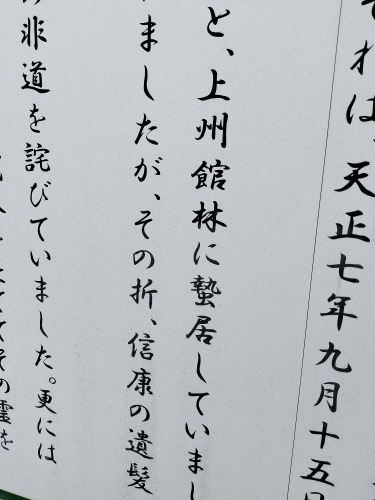 それは、天正七年九月十五日
と、上州館林に蟄居していまし
ましたが、その折、信康の遺髪
非道を詫びていました。更には
その霊を